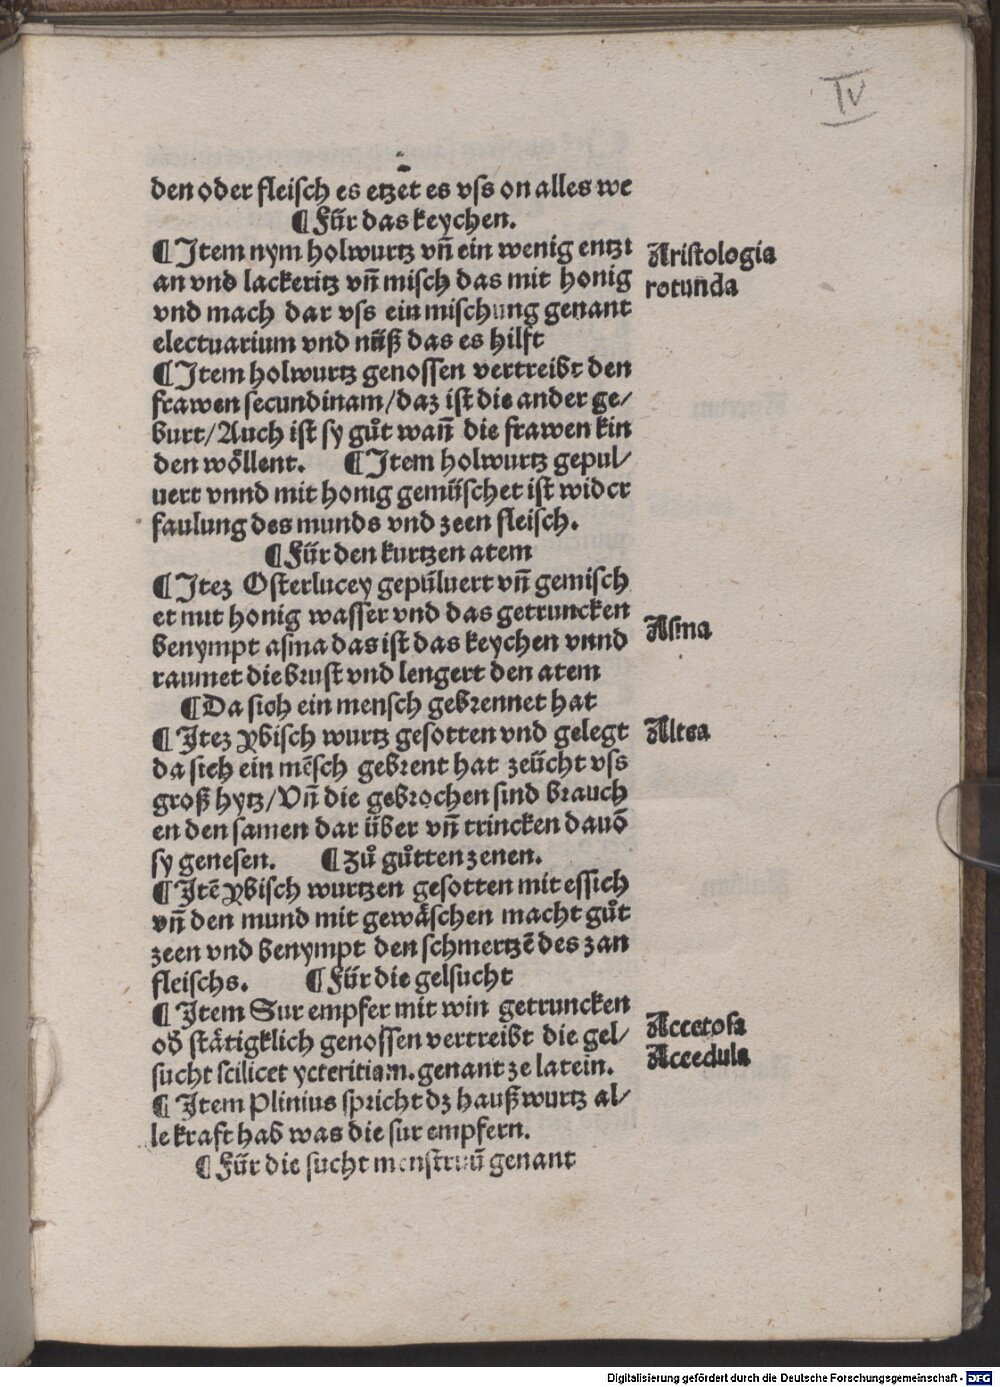 IV
den oder fleisch es etzet es vss on alles we
¶ Für das keychen.
¶ Item nym holwurtz vn̄ ein wenig entzi
an vnd lackeritz vn̄ misch das mit honig
vnd mach dar vss ein mischung genant
electuarium vnd nüß das es hilft
¶ Item holwurtz genossen vertreibt den
frawen secundinam/daz ist die ander ge/
burt/Auch ist sy gůt wan̄ die frawen kin
den wöllent. ¶ Item holwurtz gepul/
uert vnnd mit honig gemüschet ist wider
faulung des munds vnd zeen fleisch.
¶ Für den kurtzen atem
¶ Itez Osterlucey gepüluert vn̄ gemisch
et mit honig wasser vnd das getruncken
benympt asma das ist das keychen vnnd
raumet die brust vnd lengert den atem
¶ Da sich ein mensch gebrennet hat
¶ Itez ybisch wurtz gesotten vnd gelegt
da sich ein mēsch gebrent hat zeücht vss
groß hytz/Vn̄ die gebrochen sind brauch
en den samen dar über vn̄ trincken dauō
sy genesen. ¶ Zů gůtten zenen.
¶ Itē ybisch wurtzen gesotten mit essich
vn̄ den mund mit gewäschen macht gůt
zeen vnd benympt den schmertzē des zan
fleischs. ¶ Für die gelsucht
¶ Item Sur empfer mit win getruncken
od̄ stätigklich genossen vertreibt die gel/
sucht scilicet ycteritiam. genant ze latein.
¶ Item Plinius spricht dz haußwurtz al/
le kraft hab was die sur empfern.
¶ Für die sucht menstruū genant
Aristologia
rotunda
Asma
Altea
Accetosa
Accedula
Digitalisierung gefördert durch die Deutsche Forschungsgemeinschaft - DFG